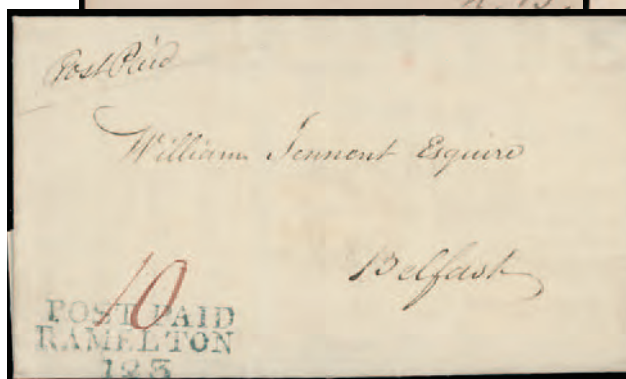 Post Paid
William Tennent Esquire
Belfast
10
POST PAID
RAMELTON
123